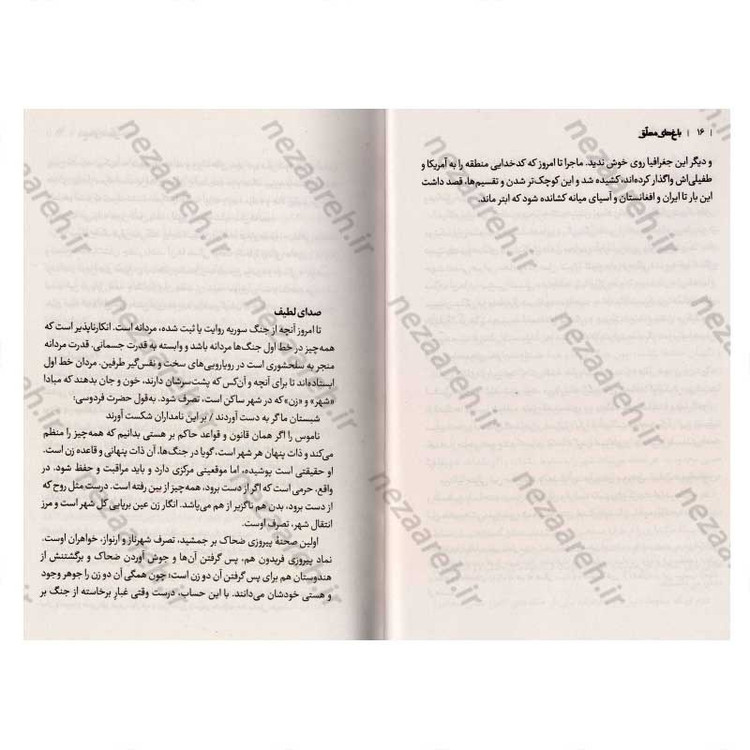 | ۱۶ | باغ‌های معلّق
و دیگر این جغرافیا روی خوش ندید. ماجرا تا امروز که کدخدایی منطقه را به آمریکا و
طفیلی‌اش واگذار کرده‌اند، کشیده شد و این کوچک‌تر شدن و تقسیم‌ها، قصد داشت
این بار تا ایران و افغانستان و آسیای میانه کشانده شود که ابتر ماند.
صدای لطیف
تا امروز آنچه از جنگ سوریه روایت یا ثبت شده، مردانه است. انکارناپذیر است که
همه‌چیز در خط اول جنگ‌ها مردانه باشد و وابسته به قدرت جسمانی. قدرت مردانه
منجر به سلحشوری است در رویارویی‌های سخت و نفس‌گیر طرفین. مردان خط اول
ایستاده‌اند تا برای آنچه و آن‌کس که پشت‌سرشان دارند، خون و جان بدهند که مبادا
«شهر» و «زن» که در شهر ساکن است، تصرف شود. به‌قول حضرت فردوسی:
شبستان ما گر به دست آورند / بر این نامداران شکست آورند
ناموس را اگر همان قانون و قواعد حاکم بر هستی بدانیم که همه‌چیز را منظم
می‌کند و ذات پنهان هر شهر است، گویا در جنگ‌ها، آن ذات پنهانی و قاعده زن است.
او حقیقتی است پوشیده، اما موقعیتی مرکزی دارد و باید مراقبت و حفظ شود. در
واقع، حرمی است که اگر از دست برود، همه‌چیز از بین رفته است. درست مثل روح که
از دست برود، بدن هم ناگزیر از هم می‌پاشد. انگار زن عین برپایی کل شهر است و مرز
انتقال شهر، تصرف اوست.
اولین صحنهٔ پیروزی ضحاک بر جمشید، تصرف شهرناز و ارنواز، خواهران اوست.
نماد پیروزی فریدون هم، پس گرفتن آن‌ها و جوش آوردن ضحاک و برگشتنش از
هندوستان هم برای پس گرفتن آن دو زن است؛ چون همگی آن دو زن را جوهر وجود
و هستی خودشان می‌دانند. با این حساب، درست وقتی غبارِ برخاسته از جنگ بر
nezaareh.ir